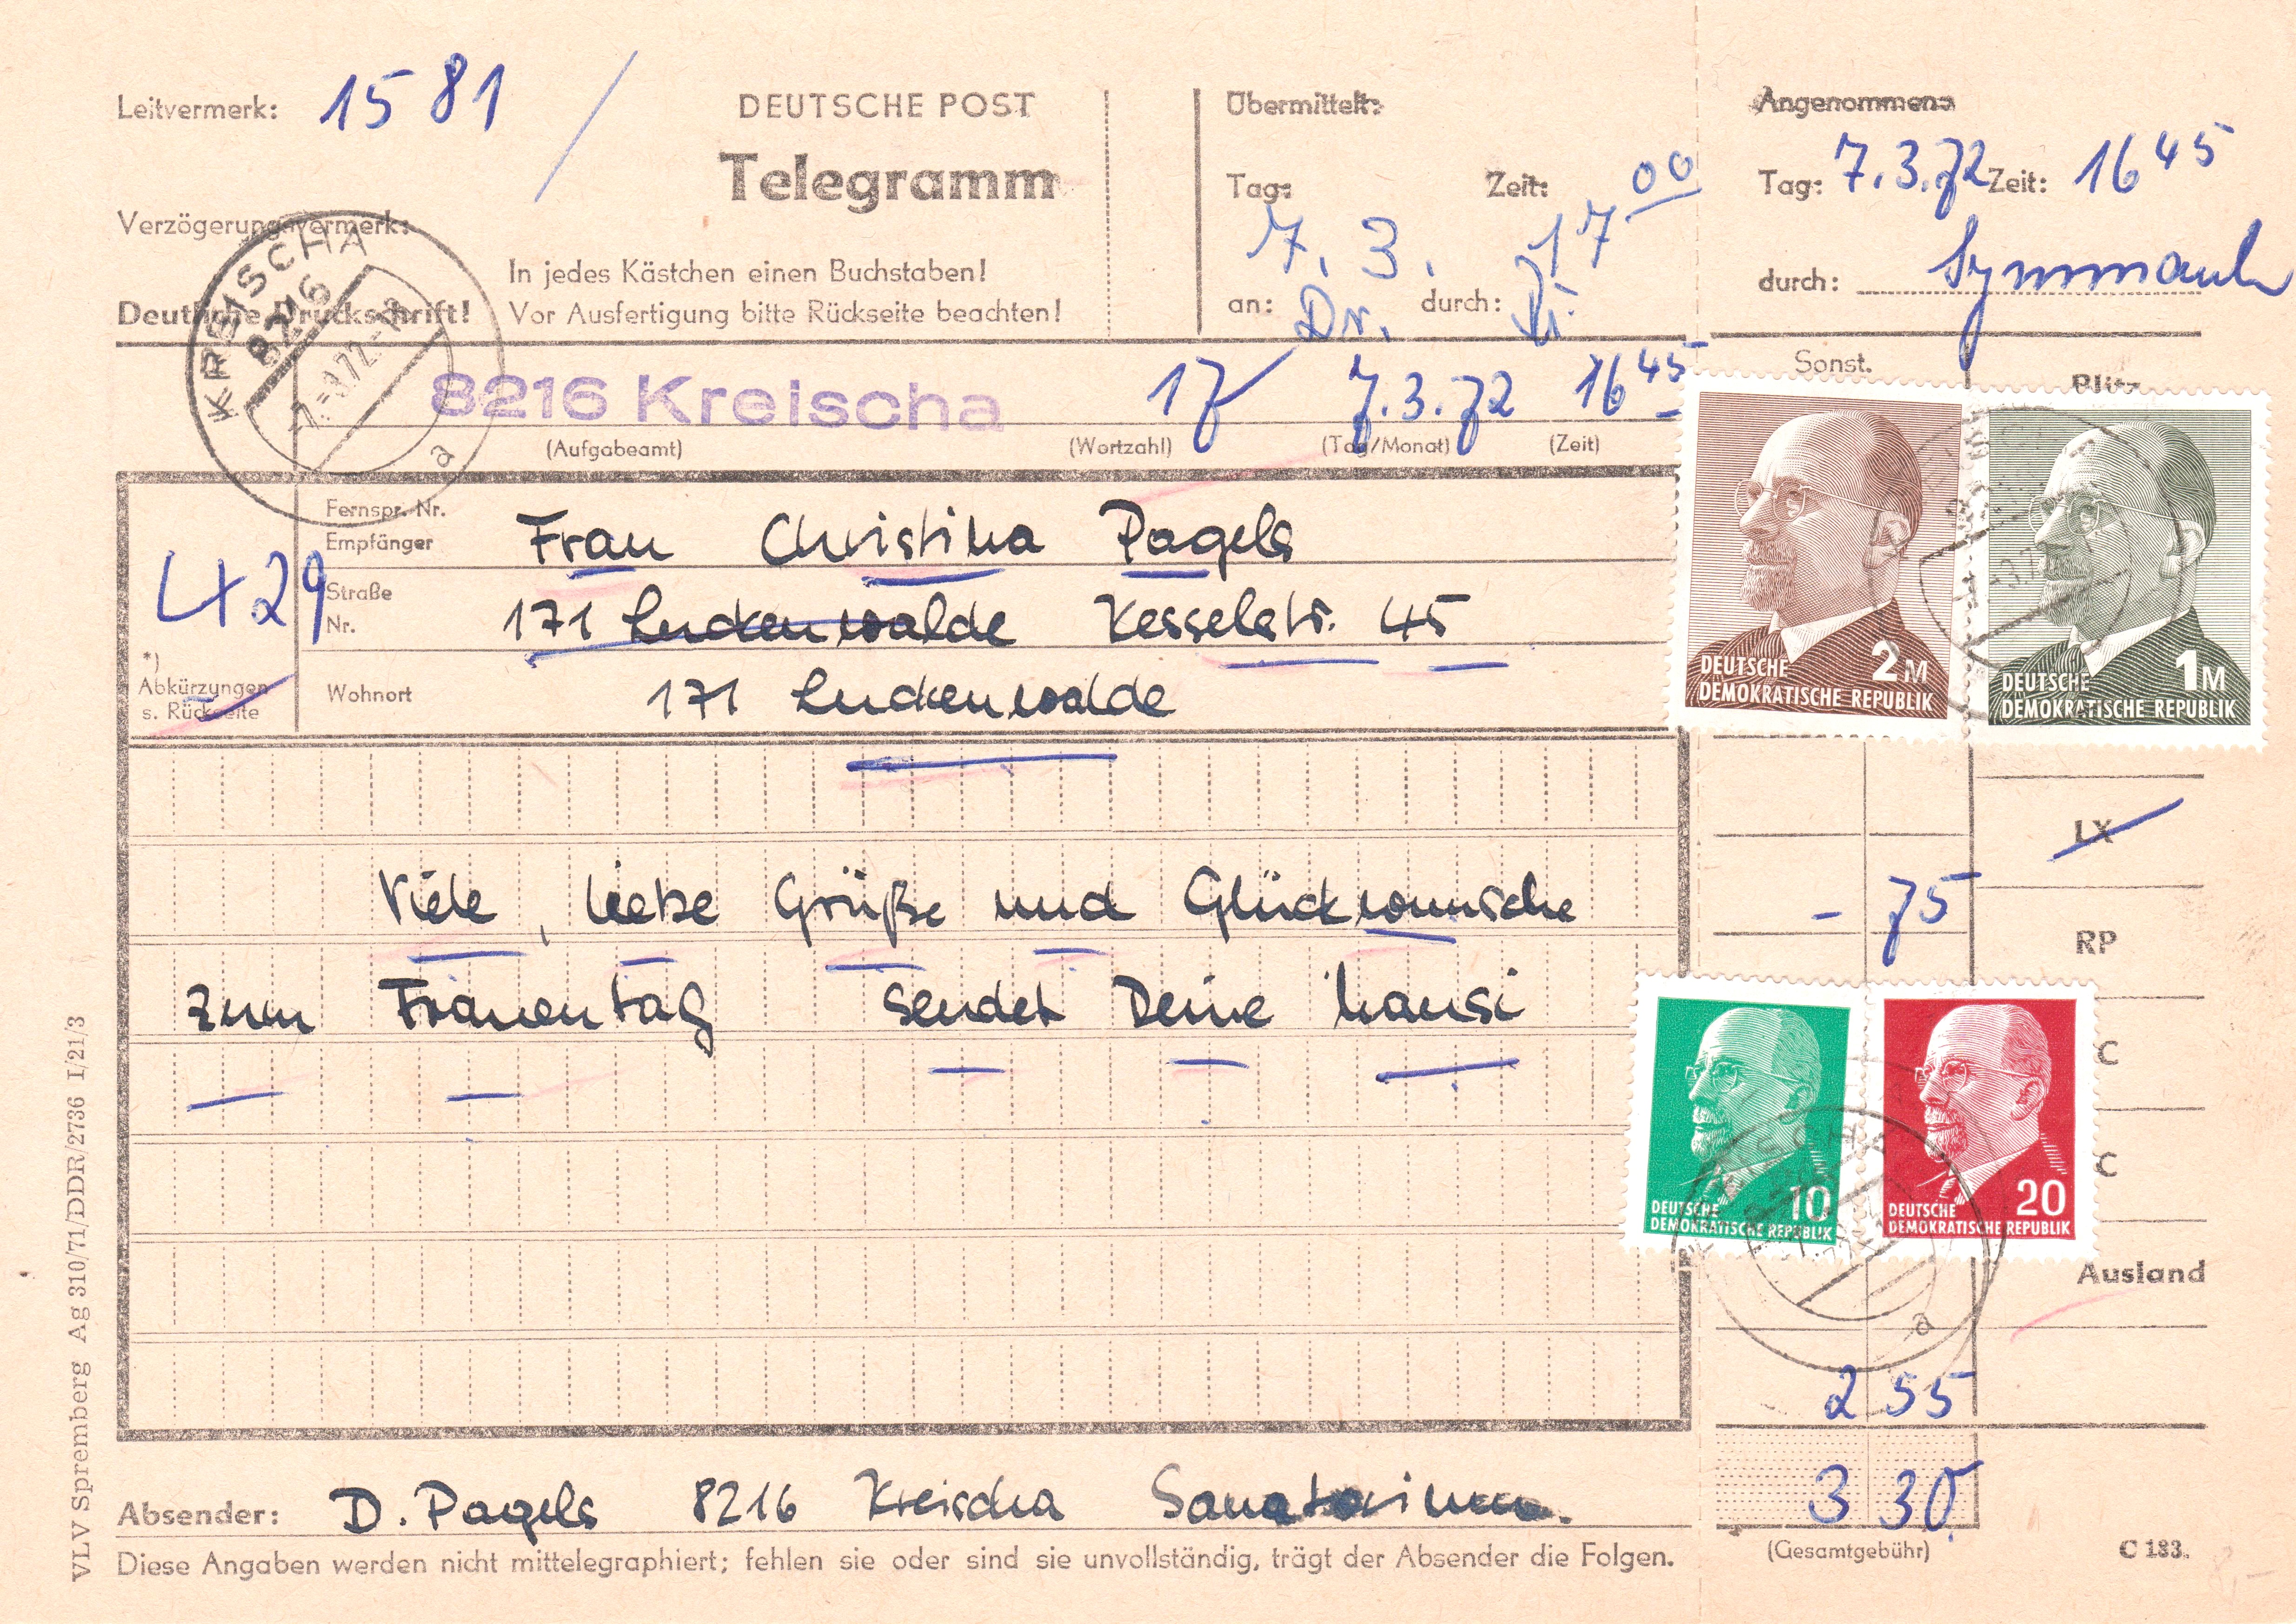 Leitvermerk: 1581 /
DEUTSCHE POST
Telegramm
Verzögerungsvermerk:
In jedes Kästchen einen Buchstaben!
Deutliche Druckschrift! Vor Ausfertigung bitte Rückseite beachten!
Übermittelt:
Tag: Zeit:
7. 3. 17 00
an: Dr. durch:
Angenommen:
Tag: 7.3.72 Zeit: 16 45
durch:
KREISCHA
8216
a
8216 Kreischa 17 7.3.72 16 45
(Aufgabeamt) (Wortzahl) (Tag/Monat) (Zeit)
Sonst. Blitz
429
*)
Abkürzungen
s. Rückseite
Fernspr. Nr.
Empfänger Frau Christina Pagels
Straße
Nr. 171 Luckenwalde Kesselstr. 45
Wohnort 171 Luckenwalde
DEUTSCHE 2 M
DEMOKRATISCHE REPUBLIK
DEUTSCHE 1 M
DEMOKRATISCHE REPUBLIK
LX
- 75
RP
Viele, liebe Grüße und Glückwunsche
zum Frauentag sendet Deine hansi
C
C
DEUTSCHE 10
DEMOKRATISCHE REPUBLIK
DEUTSCHE 20
DEMOKRATISCHE REPUBLIK
a
Ausland
2 55
3 30
(Gesamtgebühr) C 183.
Absender: D. Pagels 8216 Kreischa Sanatorium.
Diese Angaben werden nicht mittelegraphiert; fehlen sie oder sind sie unvollständig, trägt der Absender die Folgen.
VLV Spremberg Ag 310/71/DDR/2736 I/21/3